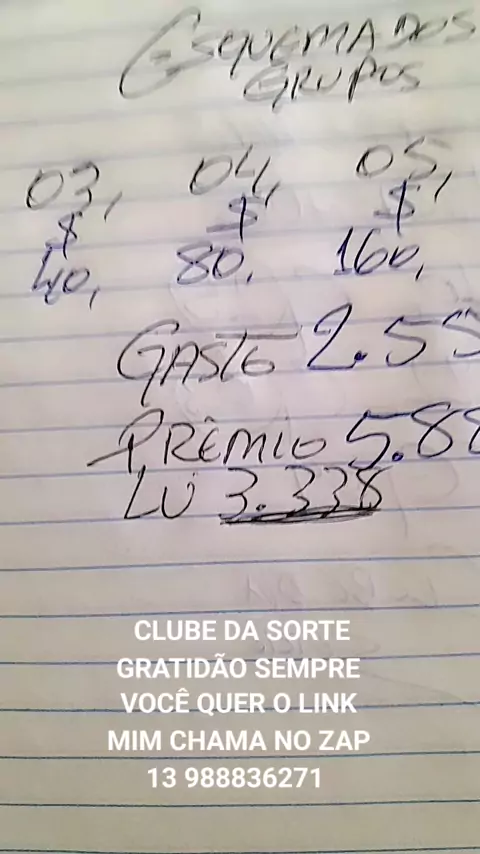 ESQUEMA DOS
GRUPOS
03, 04, 05,
$ $ $,
40, 80, 160,
GASTO 2.55
PRÊMIO 5.88
LU 3.338
CLUBE DA SORTE
GRATIDÃO SEMPRE
VOCÊ QUER O LINK
MIM CHAMA NO ZAP
13 988836271